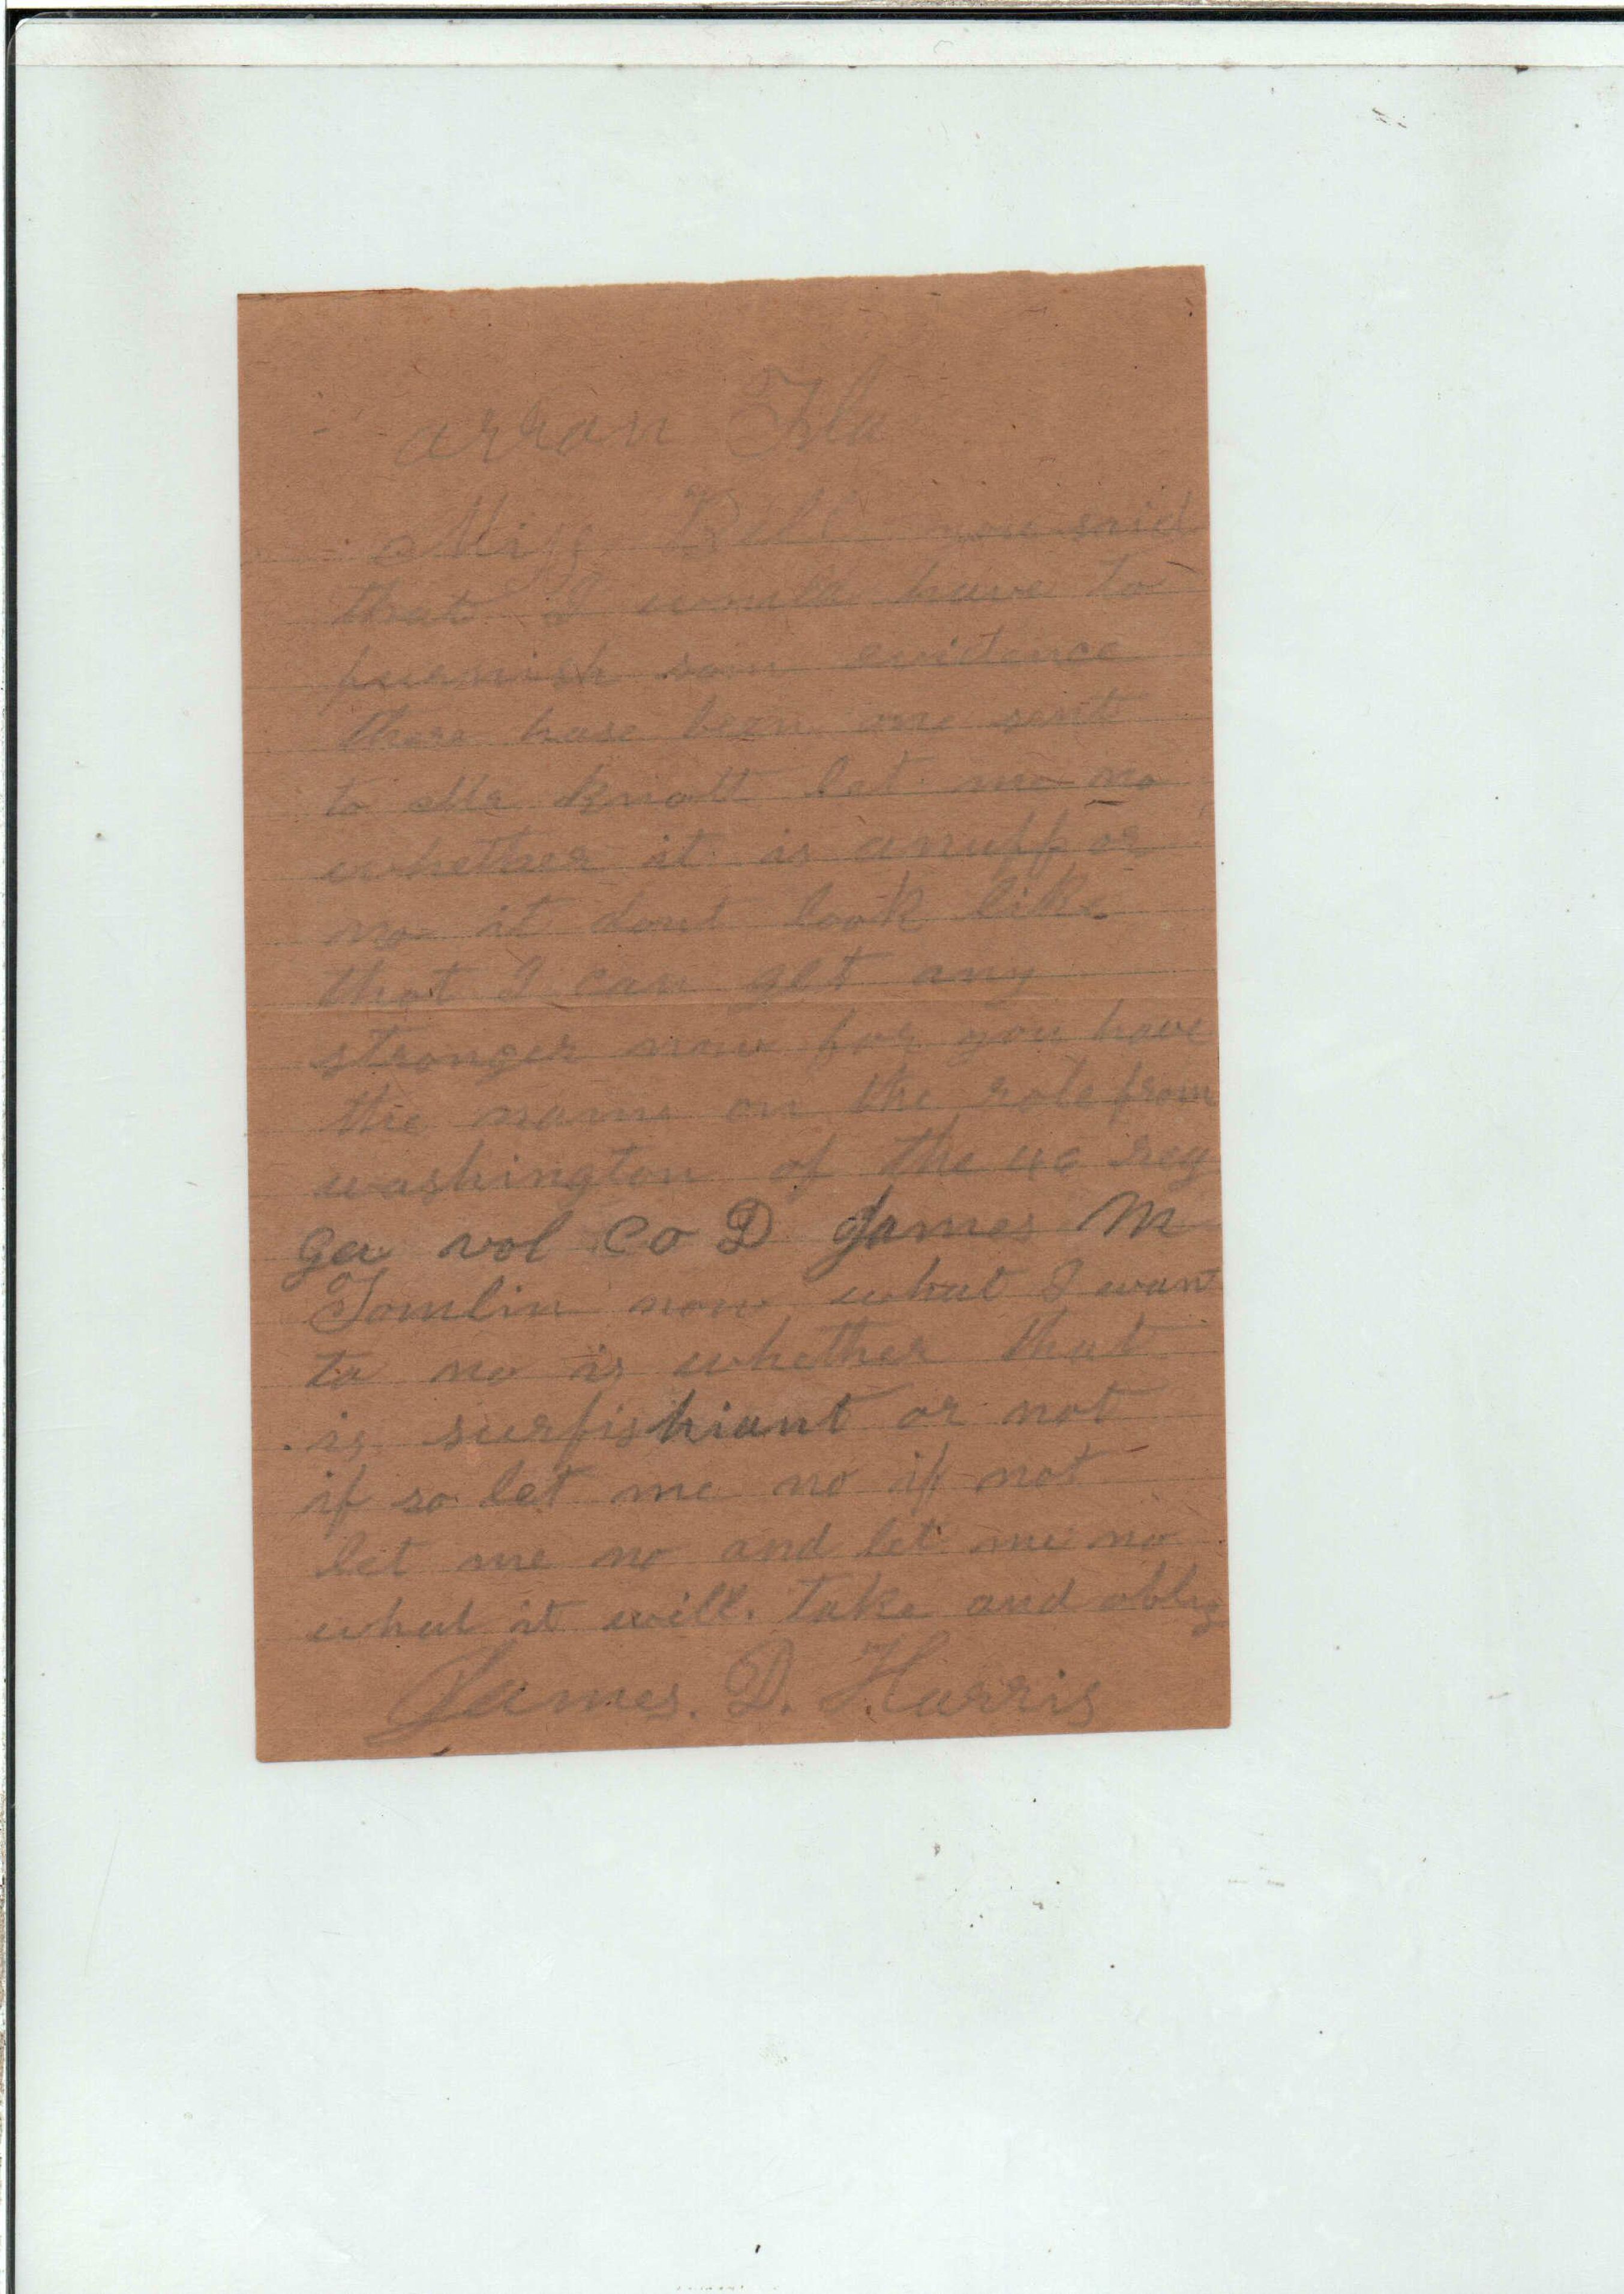 arran Fla
Miss Bell you said
that I would have to
furnish som evidence
there hase been one sent
to Mr Knott let me no
whether it is anuff or
no it dont look like
that I can get any
stronger now for you have
the name on the role from
washington of the 46 reg
Ga vol Co D James M
Tomlin now what I want
to no is whether that
is surfishiant or not
if so let me no if not
let me no and let me no
what it will. take and oblig
James. D. Harris